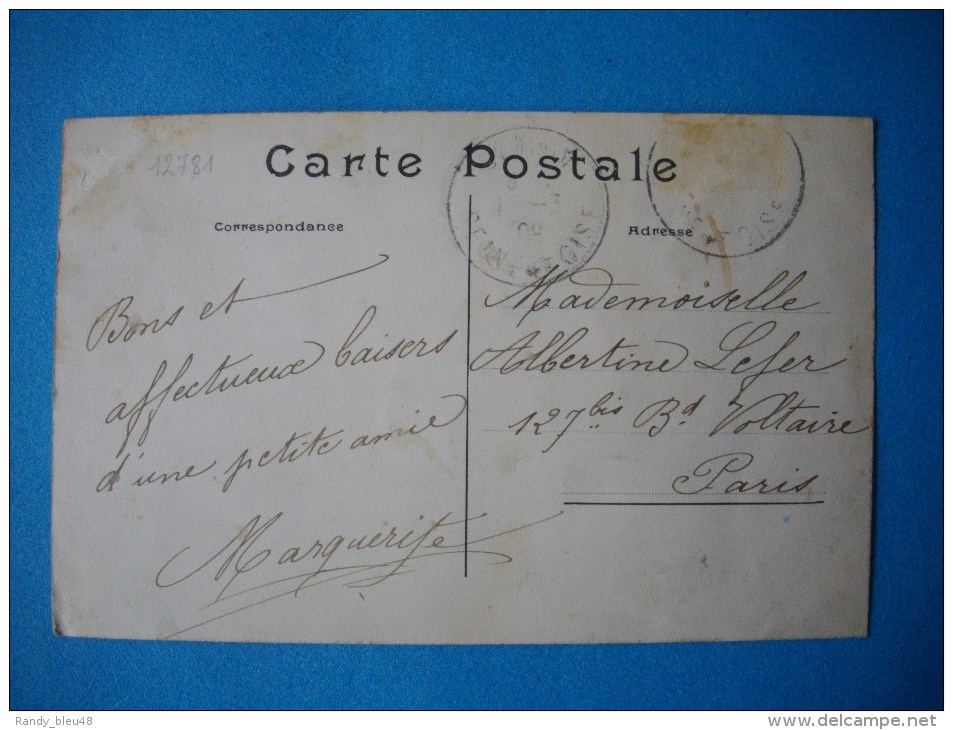 12781
Carte Postale
Correspondance
Adresse
SEINE ET OISE
ET OISE
Bons et
affectueux baisers
d'une petite amie
Marguerite
Mademoiselle
Albertine Lefer
127 bis Bd Voltaire
Paris
Randy_bleu48
www.delcampe.net